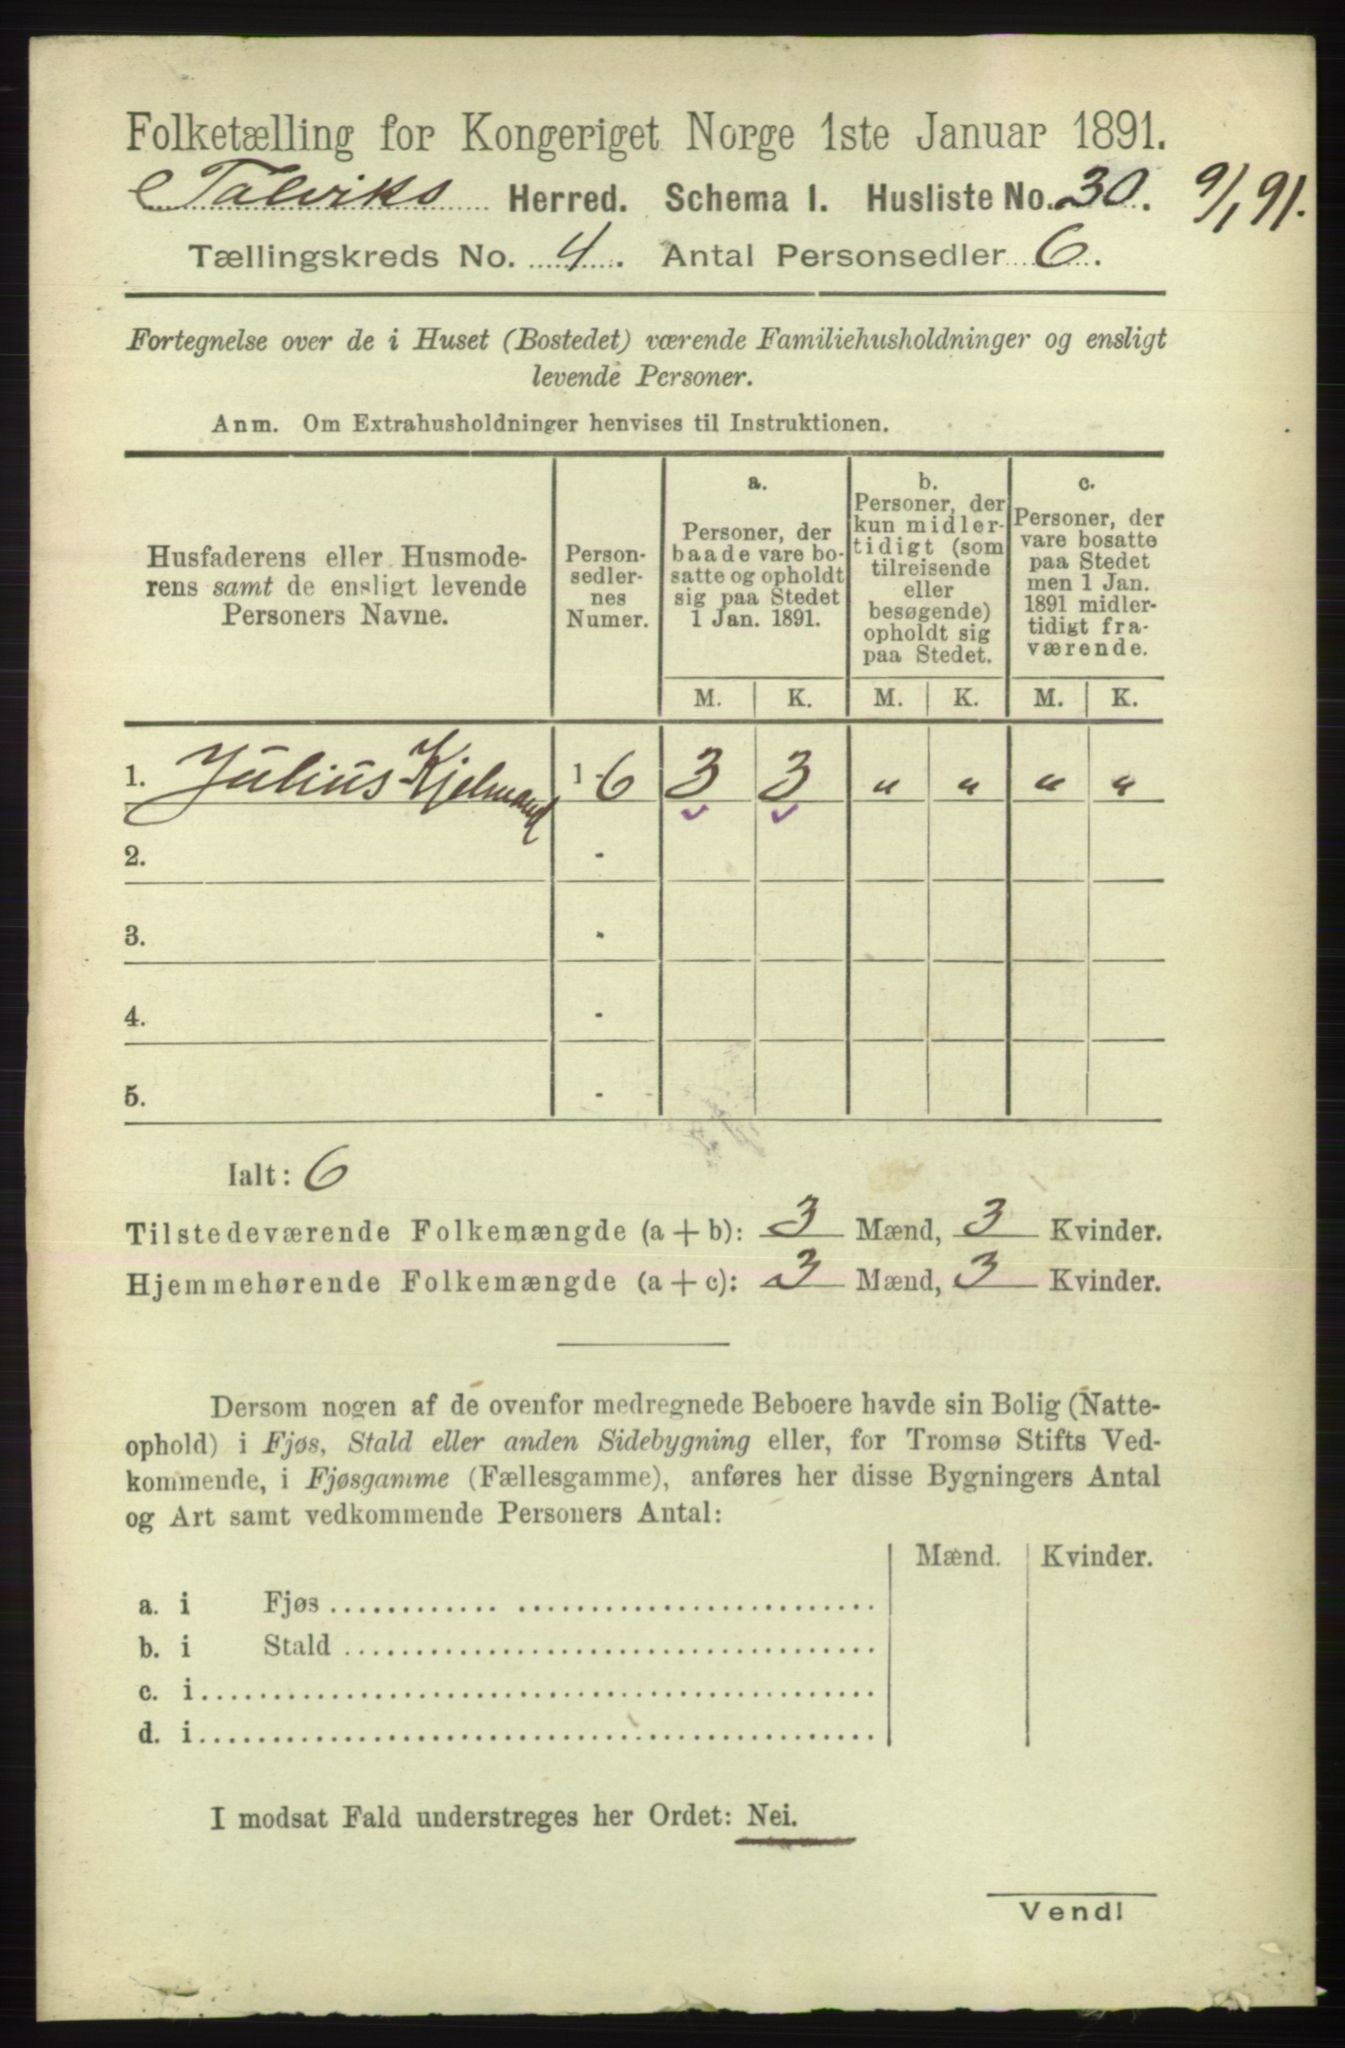 Folketælling for Kongeriget Norge 1ste Januar 1891.
Talviks Herred. Schema 1. Husliste No. 30. 9/1 91.
Tællingskreds No. 4. Antal Personsedler 6.
Fortegnelse over de i Huset (Bostedet) værende Familiehusholdninger og ensligt
levende Personer.
Anm. Om Extrahusholdninger henvises til Instruktionen.
Husfaderens eller Husmode-
rens samt de ensligt levende
Personers Navne.
Person-
sedler-
nes
Numer.
a.
Personer, der
baade vare bo-
satte og opholdt
sig paa Stedet
1 Jan. 1891.
b.
Personer, der
kun midler-
tidigt (som
tilreisende
eller
besøgende)
opholdt sig
paa Stedet.
c.
Personer, der
vare bosatte
paa Stedet
men 1 Jan.
1891 midler-
tidigt fra-
værende.
M. K. M. K. M. K.
1. Julius Kjelmand 1-6 3 3 „ „ „ „
2. -
3. -
4. -
5. -
Ialt: 6
Tilstedeværende Folkemængde (a + b): 3 Mænd, 3 Kvinder.
Hjemmehørende Folkemængde (a + c): 3 Mænd, 3 Kvinder.
Dersom nogen af de ovenfor medregnede Beboere havde sin Bolig (Natte-
ophold) i Fjøs, Stald eller anden Sidebygning eller, for Tromsø Stifts Ved-
kommende, i Fjøsgamme (Fællesgamme), anføres her disse Bygningers Antal
og Art samt vedkommende Personers Antal:
Mænd. Kvinder.
a. i Fjøs
b. i Stald
c. i
d. i
I modsat Fald understreges her Ordet: Nei.
Vend!